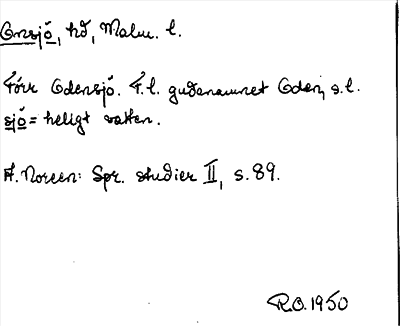 Onsjö, hd, Malm. l.
Förr Odensjö. F.l. gudanamnet Oden, s.l.
sjö = heligt vatten.
A. Noreen: Spr. studier II, s. 89.
R.O. 1950